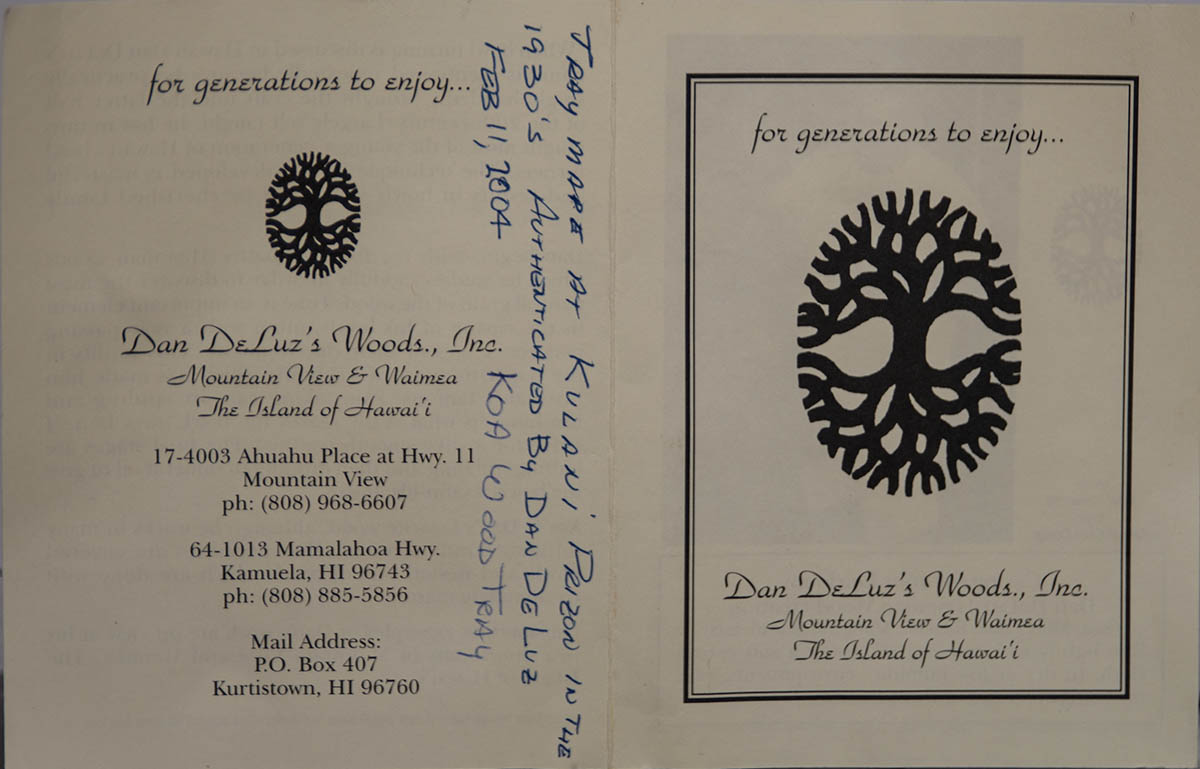 for generations to enjoy...
Dan DeLuz's Woods., Inc.
Mountain View & Waimea
The Island of Hawai'i
17-4003 Ahuahu Place at Hwy. 11
Mountain View
ph: (808) 968-6607
64-1013 Mamalahoa Hwy.
Kamuela, HI 96743
ph: (808) 885-5856
Mail Address:
P.O. Box 407
Kurtistown, HI 96760
TRAY MADE AT KULANI PRIZON IN THE
1930's AUTHENTICATED By DAN DE LUZ
FEB 11, 2004 KOA WOOD TRAY
for generations to enjoy...
Dan DeLuz's Woods., Inc.
Mountain View & Waimea
The Island of Hawai'i